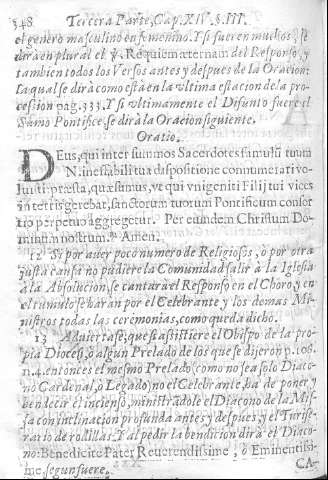 348 Tercera Parte, Cap. XIV. §. III.
el genero masculino en femenino. Y si fueren muchos, se
dirà en plural el ℣. Requiem æternam del Responso, y
tambien todos los Versos antes y despues de la Oracion:
La qual se dirà como està en la vltima estacion de la pro-
cession pag. 333. Y si vltimamente el Difunto fuere el
Sumo Pontifice, se dirà la Oracion siguiente.
Oratio.
DEus, qui inter summos Sacerdotes famulũ tuum
N. ineffabili tua dispositione connumerari vo-
luisti: præsta, quæsumus, vt qui vnigeniti Filij tui vices
in terris gerebat, sanctorum tuorum Pontificum consor
tio perpetuo aggregetur. Per eundem Christum Do-
minum nostrum. Amen.
12 Si por auer poco numero de Religiosos, ò por otra
justa causa no pudiere la Comunidad salir à la Iglesia
à la Absolucion, se cantarà el Responso en el Choro, y en
el tumulo se haràn por el Celebrante y los demas Mi-
nistros todas las ceremonias, como queda dicho.
13 Aduiertase, que si assistiere el Obispo de la pro-
pia Diocesi, ò algun Prelado de los que se dijeron p. 108.
n. 4. entonces el mesmo Prelado (como no sea solo Diaco-
no Cardenal, ò Legado) no el Celebrante, ha de poner, y
bendecir el incienso, ministràdole el Diacono de la Mis-
sa con inclinacion profunda antes y despues, y el Turife-
rario de rodillas. Y al pedir la bendicion dirà el Diaco-
no: Benedicite Pater Reuerendissime, ò Eminentissi-
me segun fuere.
CA-